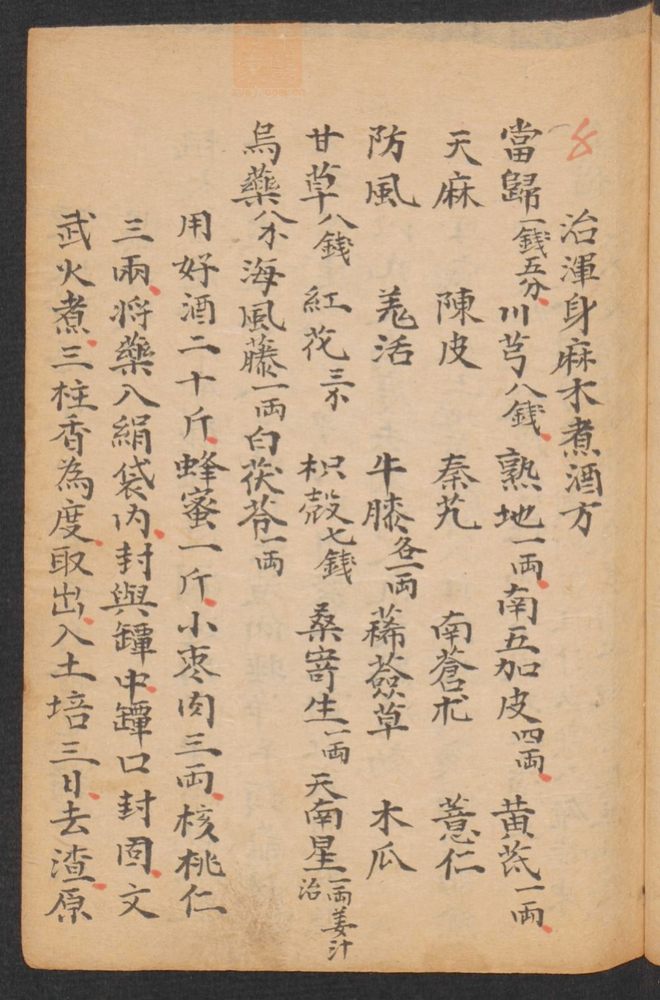 治渾身麻木煮酒方
當歸一錢五分川芎八錢熟地一両南五加皮四両黄芪一両
天麻 陳皮 秦艽 南蒼朮 薏仁
防風 羗活 牛膝各一両 豨薟草 木瓜
甘草八錢 紅花三 枳殼七錢 桑寄生一両 天南星一両姜汁治
烏藥八 海風藤一両 白茯苓一両
用好酒二十斤蜂蜜一斤小枣肉三両核桃仁
三兩将藥入絹袋内封與罈中罈口封固文
武火煮三柱香為度取出入土培三日去渣原